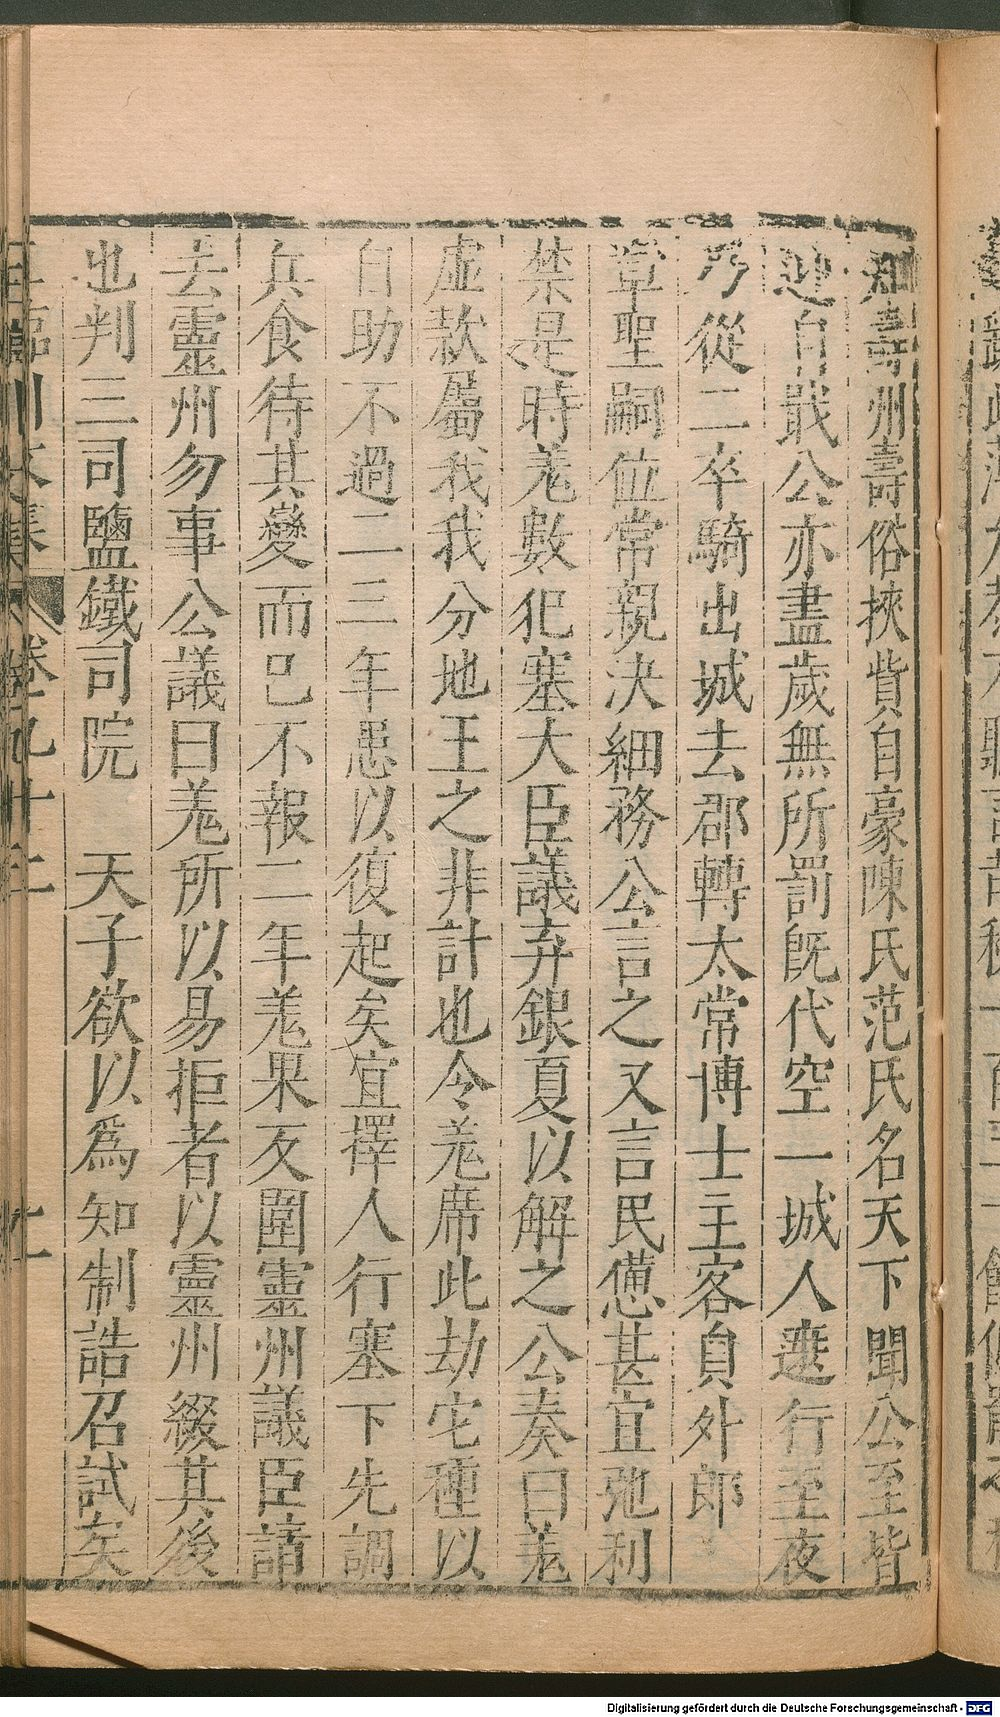 知壽州壽俗挾貲自豪陳氏范氏名天下聞公至皆
迎自戢公亦盡歲無所罰旣代空一城人遮行至夜
乃從二卒騎出城去郡轉太常博士主客員外郎
章聖嗣位常親決細務公言之又言民憊甚宜弛利
禁是時羌數犯塞大臣議弃銀夏以解之公奏曰羌
虛款屬我我分地王之非計也令羌席此劫它種以
自助不過二三年患以復起矣宜擇人行塞下先調
兵食待其變而已不報二年羌果反圍靈州議臣請
去靈州勿事公議曰羌所以易拒者以靈州綴其後
也判三司鹽鐵司院　天子欲以爲知制誥召試矣
卷九十二
Digitalisierung gefördert durch die Deutsche Forschungsgemeinschaft - DFG